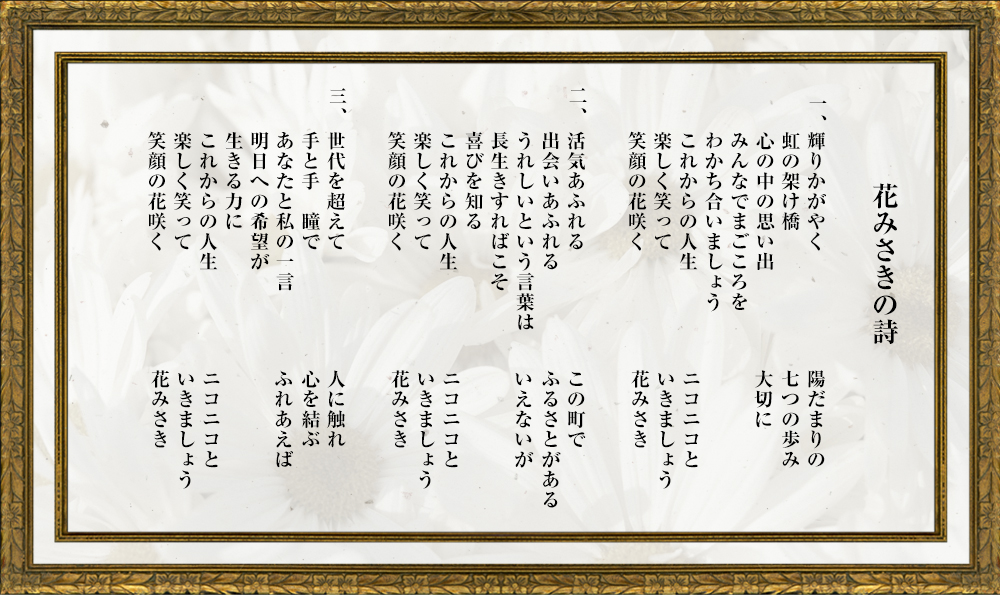 花みさきの詩
一、輝りかがやく　陽だまりの
虹の架け橋　七つの歩み
心の中の思い出　大切に
みんなでまごころを
わかち合いましょう
これからの人生　ニコニコと
楽しく笑って　いきましょう
笑顔の花咲く　花みさき
二、活気あふれる　この町で
出会いあふれる　ふるさとがある
うれしいという言葉は　いえないが
長生きすればこそ
喜びを知る
これからの人生　ニコニコと
楽しく笑って　いきましょう
笑顔の花咲く　花みさき
三、世代を超えて　人に触れ
手と手　瞳で　心を結ぶ
あなたと私の一言　ふれあえば
明日への希望が
生きる力に
これからの人生　ニコニコと
楽しく笑って　いきましょう
笑顔の花咲く　花みさき